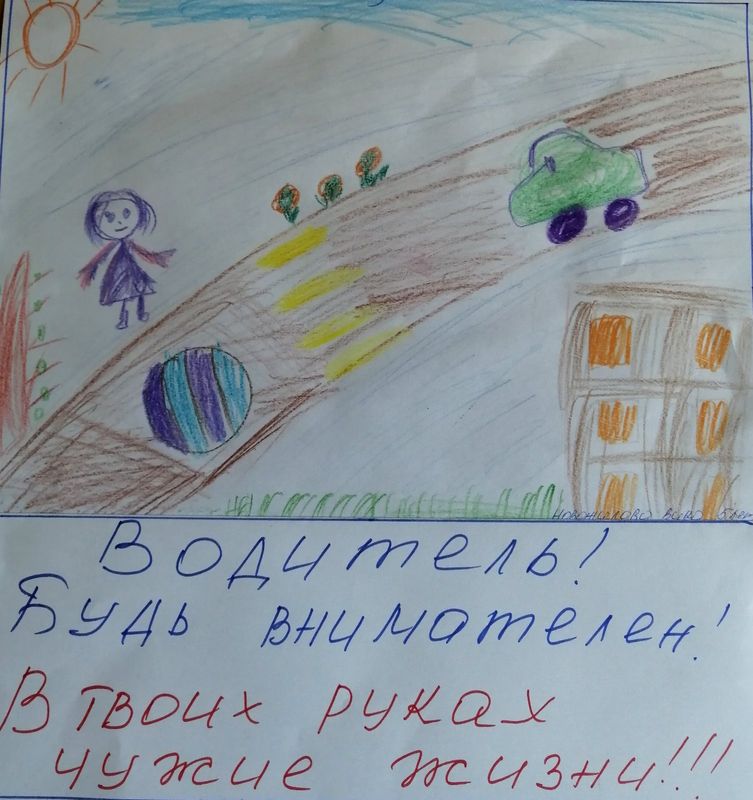 Водитель!
Будь внимателен!
В твоих руках
чужие жизни!!!